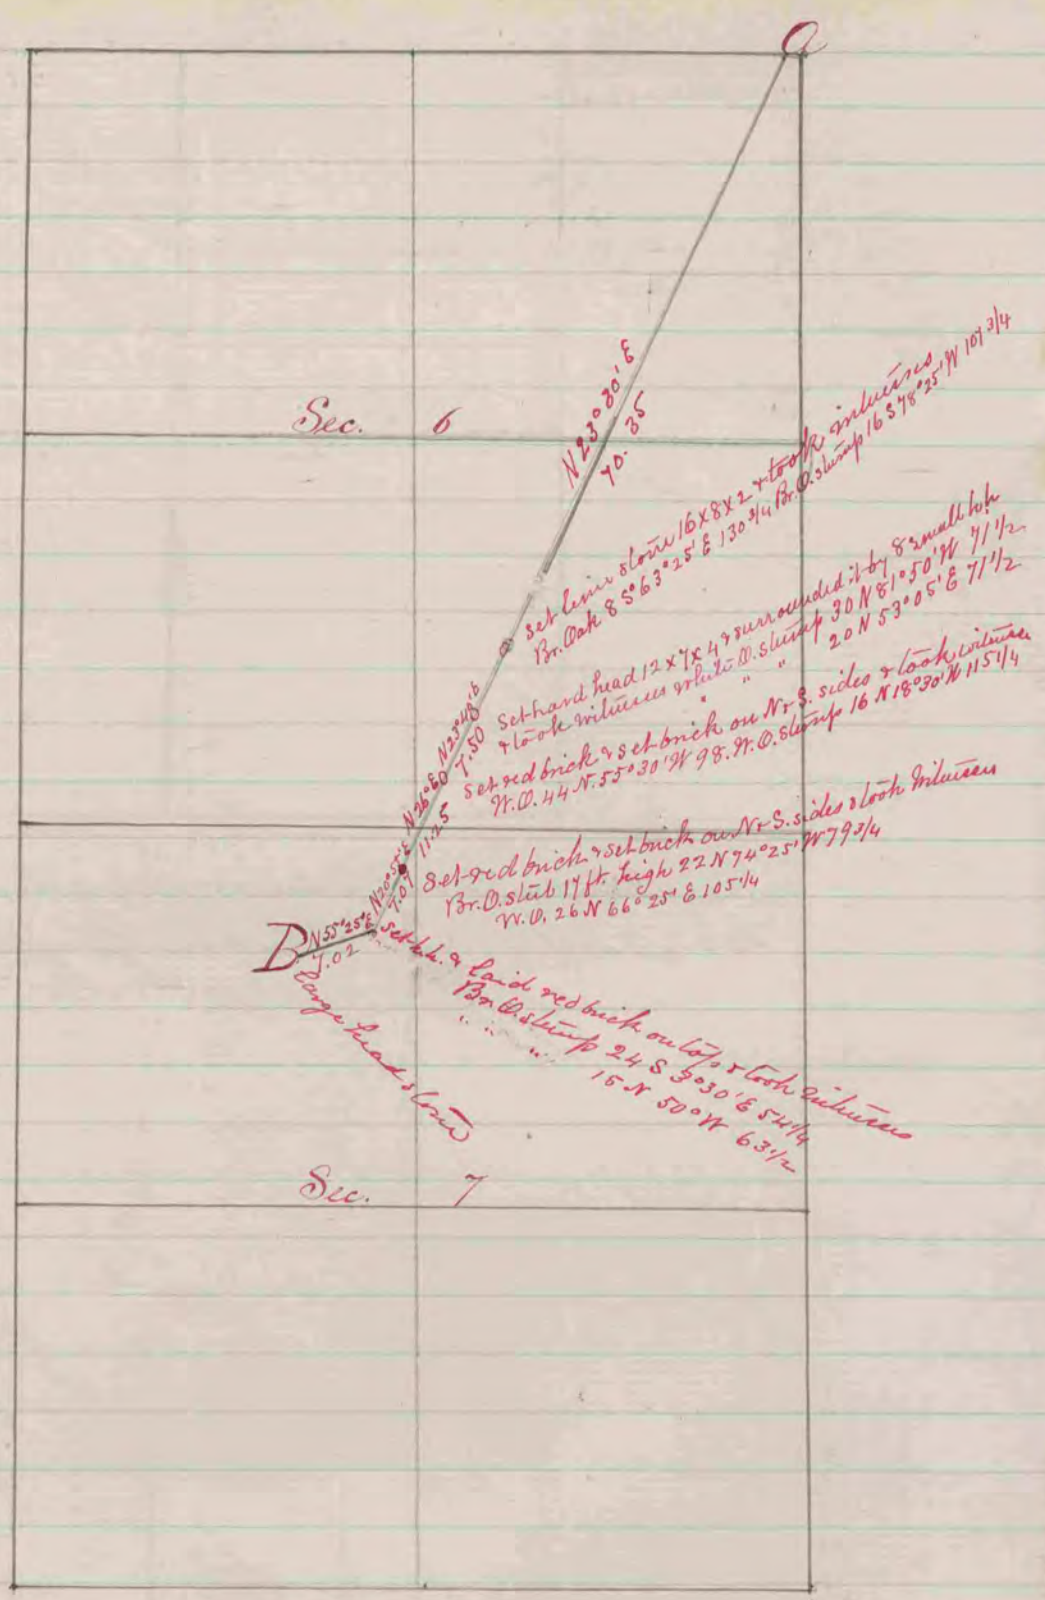 a
N 23° 30' E
70.35
Sec. 6
set lime stone 16 x 8 x 2 & took witnesses
Br. Oak 8 S 63° 25' E 130 3/4 Br. O. stump 16 S 78° 25' W 107 3/4
N 23° 48'
7.50
Set hard head 12 x 7 x 4 & surrounded it by 8 small
& took witnesses white O. stump 30 N 81° 50' W 71 1/2
" " " 20 N 53° 05' E 71 1/2
N 26° E
11.25
set red brick & set brick on N & S. sides & took witnesses
W.O. 44 N. 55° 30' W 98. W.O. stump 16 N 18° 30' W 115 1/4
N 20° 5 E
7.07
Set red brick & set brick on N & S. sides & took witnesses
Br. O. stub 17 ft. high 22 N 74° 25' W 79 3/4
W.O. 26 N 66° 25' E 105 1/4
B
N 55° 25' E
7.02
set h.h. & laid red brick on top & took witnesses
Br. O. stump 24 S 3° 30' E 54 1/4
" " " 15 N 50° W 63 1/2
large head stone
Sec. 7